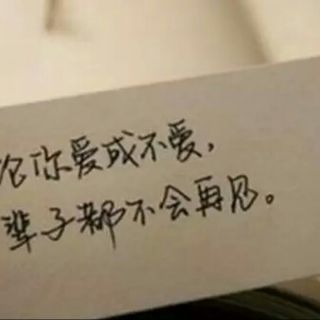 论你爱成不爱，
辈子都不会再见。